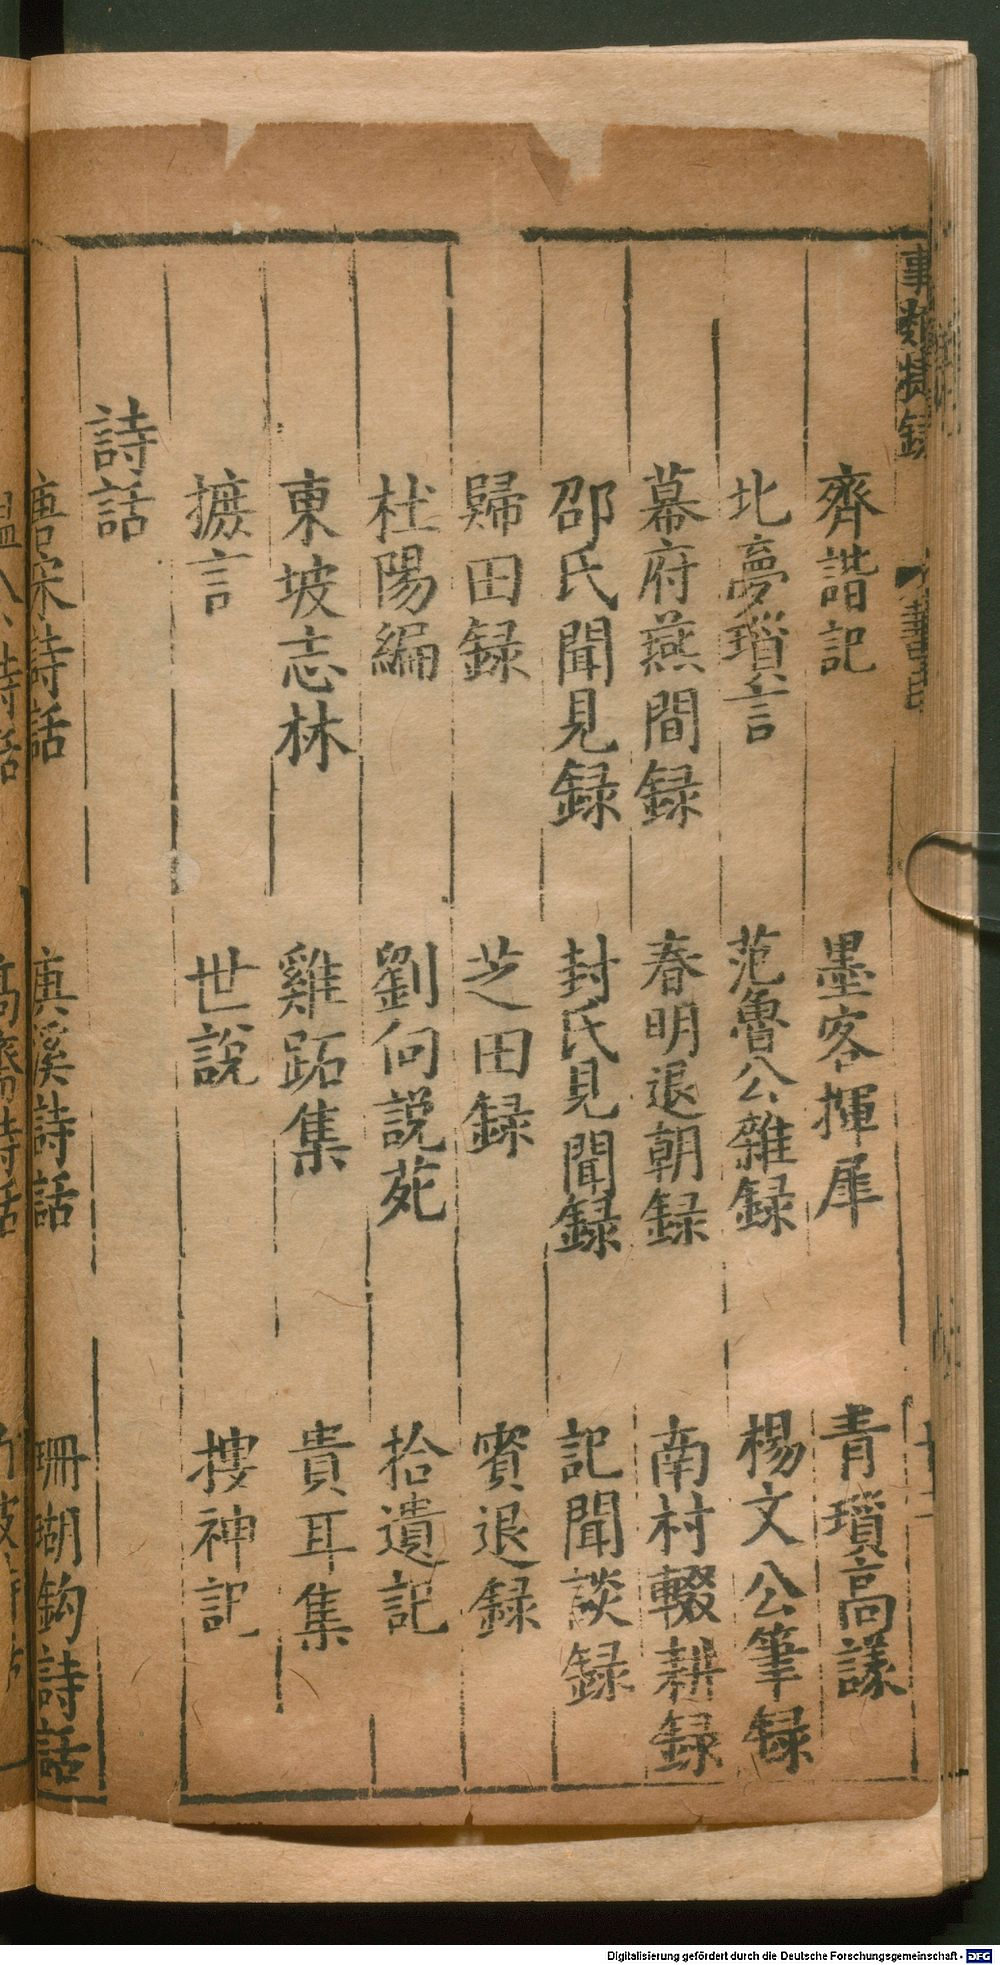 事類捷錄
齊諧記 墨客揮犀 青瑣高議
北夢瑣言 范魯公雜録 楊文公筆録
幕府燕間録 春明退朝録 南村輟耕録
邵氏聞見録 封氏見聞録 記聞談録
歸田録 芝田録 賓退録
杜陽編 劉向說苑 拾遺記
東坡志林 雞跖集 貴耳集
摭言 世說 搜神記
詩話
唐宋詩話 溪詩話 珊瑚鈎詩話
詩話 高齋詩話
Digitalisierung gefördert durch die Deutsche Forschungsgemeinschaft - DFG